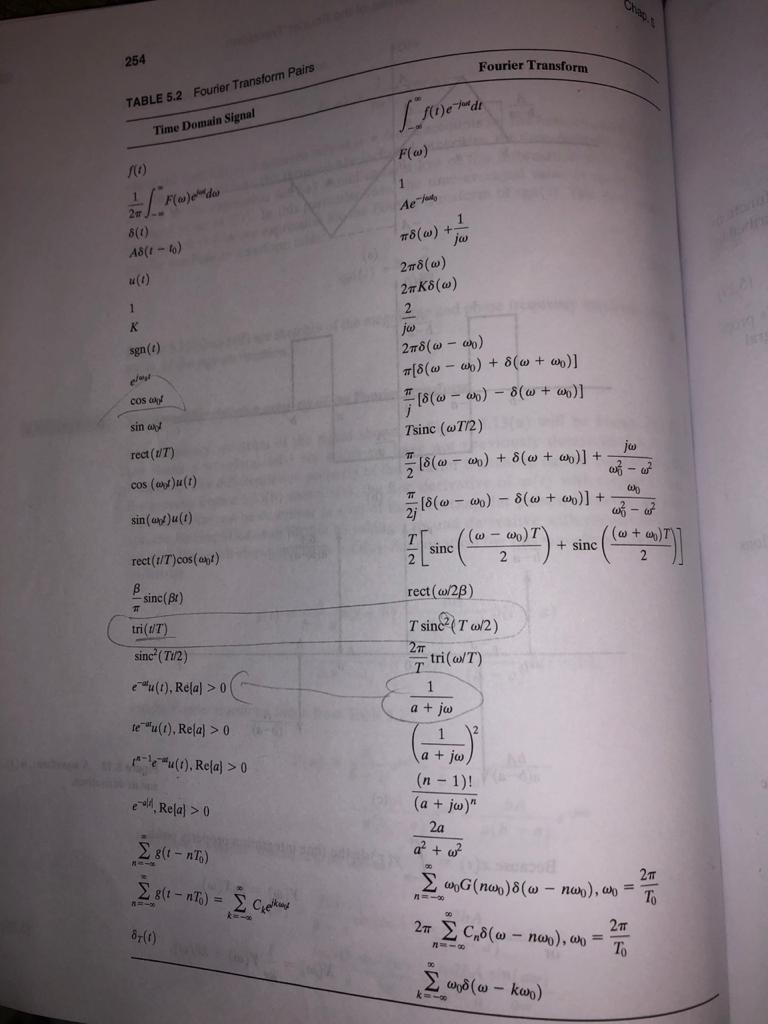 Chap. 5
254
TABLE 5.2 Fourier Transform Pairs
Time Domain Signal Fourier Transform
f(t) ∫_{-∞}^{∞} f(t)e^{-jωt}dt
1/2π ∫_{-∞}^{∞} F(ω)e^{jωt}dω F(ω)
δ(t) 1
Aδ(t − t₀) Ae^{-jωt₀}
u(t) πδ(ω) + 1/jω
1 2πδ(ω)
K 2πKδ(ω)
sgn(t) 2/jω
e^{jω₀t} 2πδ(ω − ω₀)
cos ω₀t π[δ(ω − ω₀) + δ(ω + ω₀)]
sin ω₀t π/j [δ(ω − ω₀) − δ(ω + ω₀)]
rect(t/T) Tsinc (ωT/2)
cos (ω₀t)u(t) π/2 [δ(ω − ω₀) + δ(ω + ω₀)] + jω/(ω₀² − ω²)
sin(ω₀t)u(t) π/2j [δ(ω − ω₀) − δ(ω + ω₀)] + ω₀/(ω₀² − ω²)
rect(t/T)cos(ω₀t) T/2 [sinc ((ω − ω₀)T/2) + sinc ((ω + ω₀)T/2)]
β/π sinc(βt) rect(ω/2β)
tri(t/T) T sinc²(T ω/2)
sinc²(Tt/2) 2π/T tri(ω/T)
e^{-at}u(t), Re{a} > 0 1/(a + jω)
te^{-at}u(t), Re{a} > 0 (1/(a + jω))²
t^{n−1}e^{-at}u(t), Re{a} > 0 (n − 1)!/(a + jω)ⁿ
e^{-a|t|}, Re{a} > 0 2a/(a² + ω²)
∑_{n=−∞}^{∞} g(t − nT₀) ∑_{n=−∞}^{∞} ω₀G(nω₀)δ(ω − nω₀), ω₀ = 2π/T₀
∑_{n=−∞}^{∞} g(t − nT₀) = ∑_{k=−∞}^{∞} C_k e^{jkω₀t} 2π ∑_{n=−∞}^{∞} C_nδ(ω − nω₀), ω₀ = 2π/T₀
δ_T(t) ∑_{k=−∞}^{∞} ω₀δ(ω − kω₀)